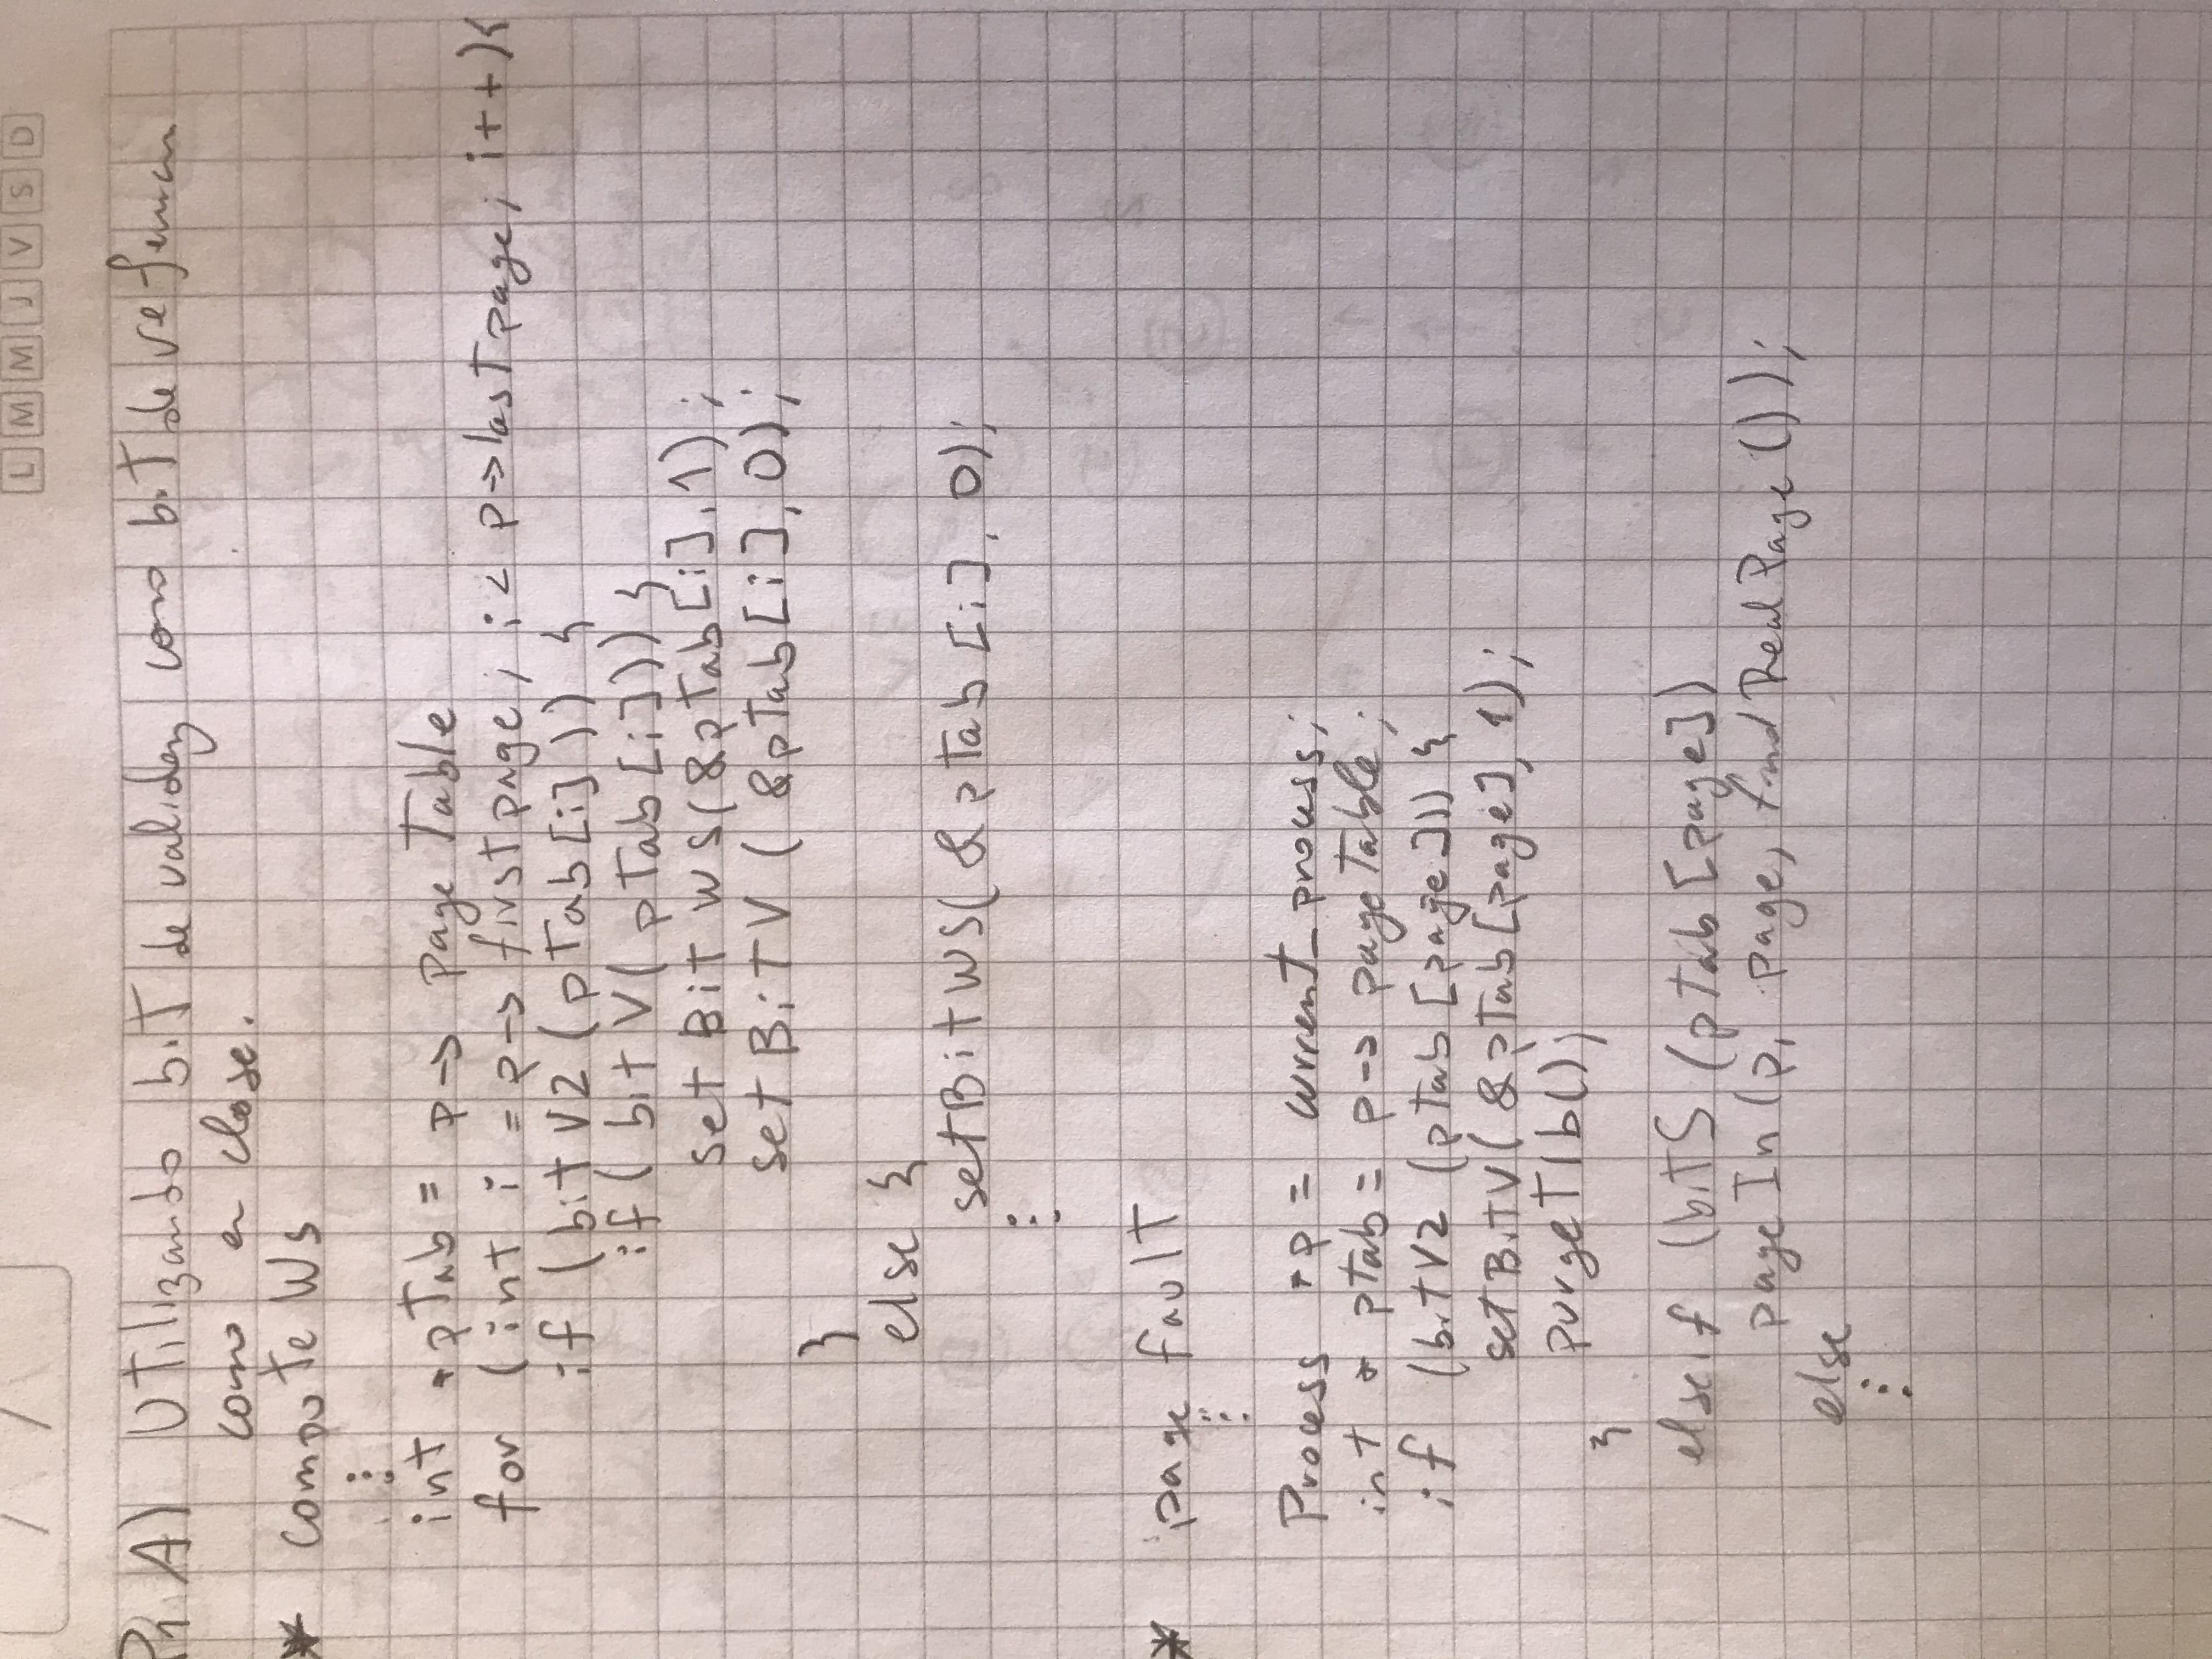 / /
L M M J V S D
P1 A) Utilizando bit de validez como bit de referencia
como en clase.
* compute WS
⋮
int *pTab = p -> page Table
for (int i = p -> firstpage; i < p->lastpage; i++){
if (bitV2 (pTab[i])) {
if( bitV( pTab[i])) {
setBitWS(&pTab[i], 1);
setBitV ( &pTab[i], 0);
}
else {
setBitWS( &pTab [i], 0);
⋮
* page fault
⋮
Process *p = current_process;
int * ptab = p -> pageTable;
if (bitV2 (ptab [page])) {
setBitV( &pTab[page], 1);
purgeTlb();
}
else if (bitS (pTab [page])
pageIn (p, page, findRealPage ());
else
⋮